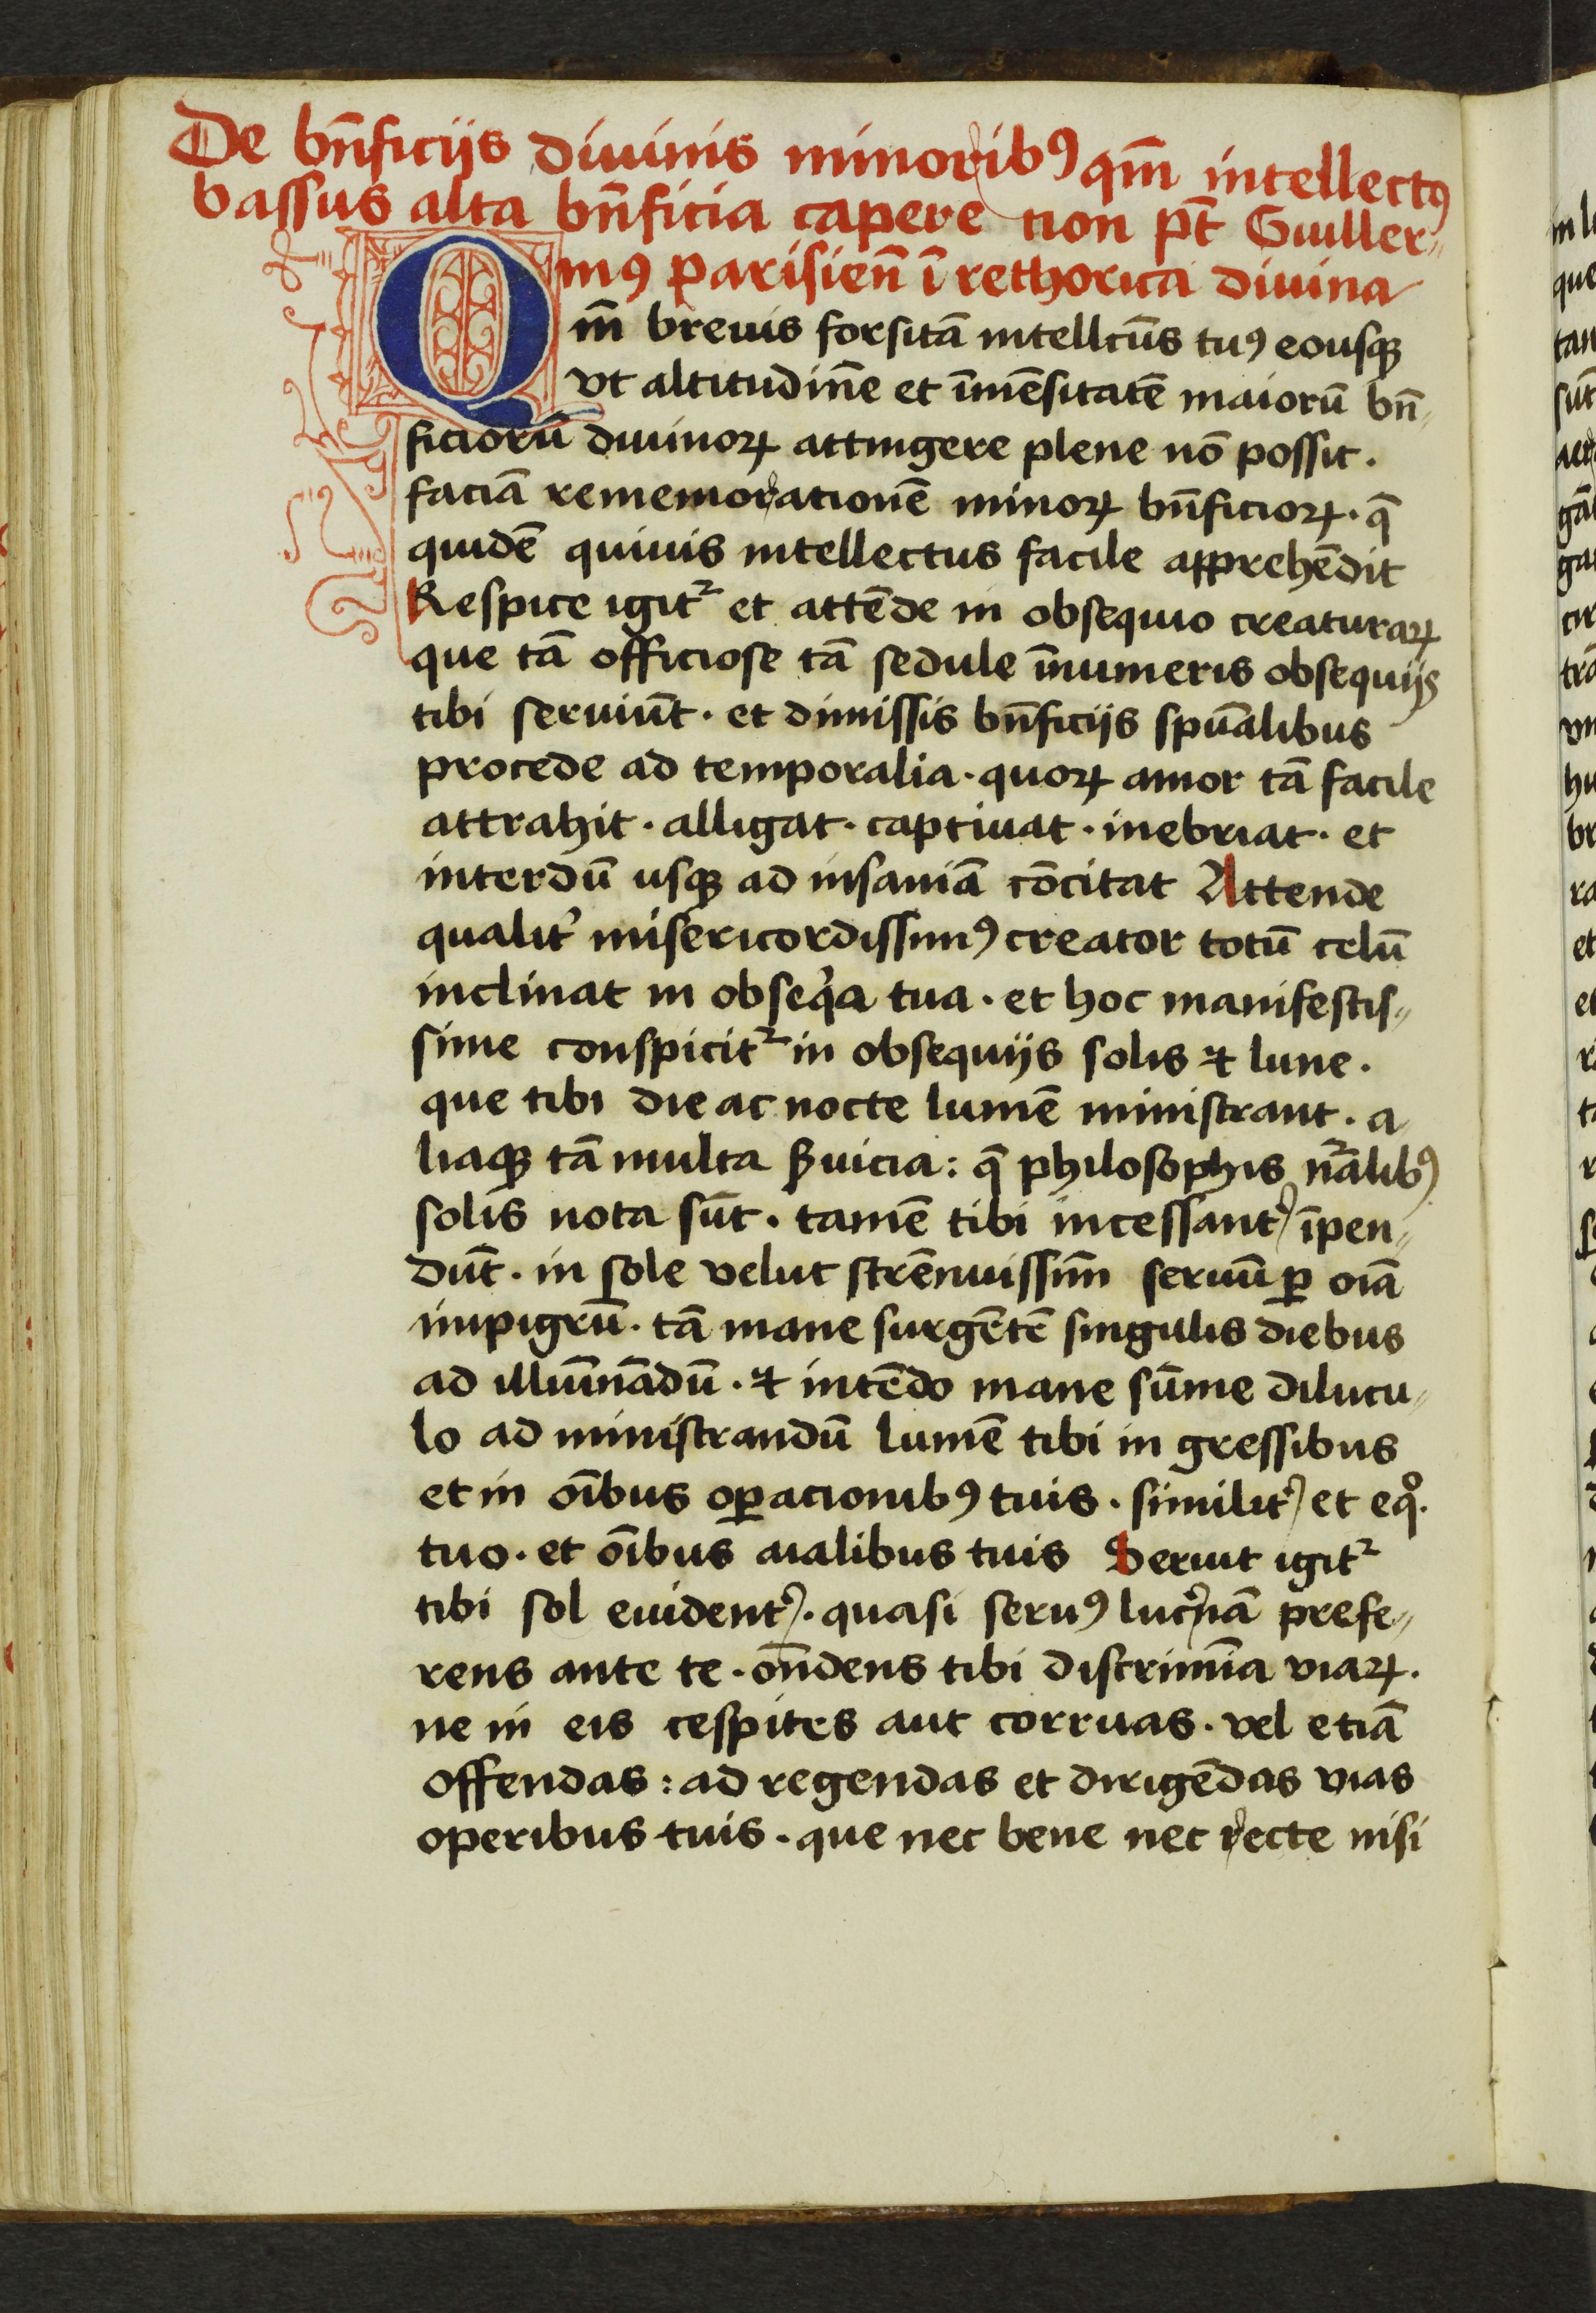 De bn̄ficijs diuinis minoribꝰ qm̄ intellectꝰ
bassus alta bn̄ficia capere non pt̄ Guiller⸗
mꝰ parisien̄ ī rethorica diuina
Qm̄ breuis forsitā intellcūs tuꝰ eousqꝫ
vt altitudinē et īmēsitatē maiorū bn̄⸗
ficiorū diuinoꝝ attingere plene nō possit.
faciā rememorationē minoꝝ bn̄ficioꝝ. q̄
quidē quiuis intellectus facile apprehēdit
Respice igit᷑ et attēde in obsequio creaturaꝝ
que tā officiose tā sedule īnumeris obsequijs
tibi seruiūt. et dimissis bn̄ficijs spūalibus
procede ad temporalia. quoꝝ amor tā facile
attrahit. alligat. captiuat. inebriat. et
interdū usqꝫ ad insaniā cōcitat Attende
qualit᷑ misericordissimꝰ creator totū celū
inclinat in obseqͥa tua. et hoc manifestis⸗
sime conspicit᷑ in obsequijs solis ⁊ lune.
que tibi die ac nocte lumē ministrant. a
liaqꝫ tā multa ẜuicia: q̄ philosophis nāalibꝰ
solis nota sūt. tamē tibi incessant᷑ īpen⸗
dūt. in sole velut strēnuissim̄ seruū ꝑ oīa
impigrū. tā mane surgētē singulis diebus
ad illuīnādū. ⁊ intēdo mane sūme dilucu⸗
lo ad ministrandū lumē tibi in gressibus
et in oībus oꝑacionibꝰ tuis. similit᷑ et eqͦ.
tuo. et oībus aialibus tuis Seruit igit᷑
tibi sol euident᷑. quasi seruꝰ luc᷑nā prefe⸗
rens ante te. on̄dens tibi discrimīa viaꝝ.
ne in eis cespites aut corruas. vel etiā
offendas: ad regendas et dirigēdas vias
operibus tuis. que nec bene nec recte nisi